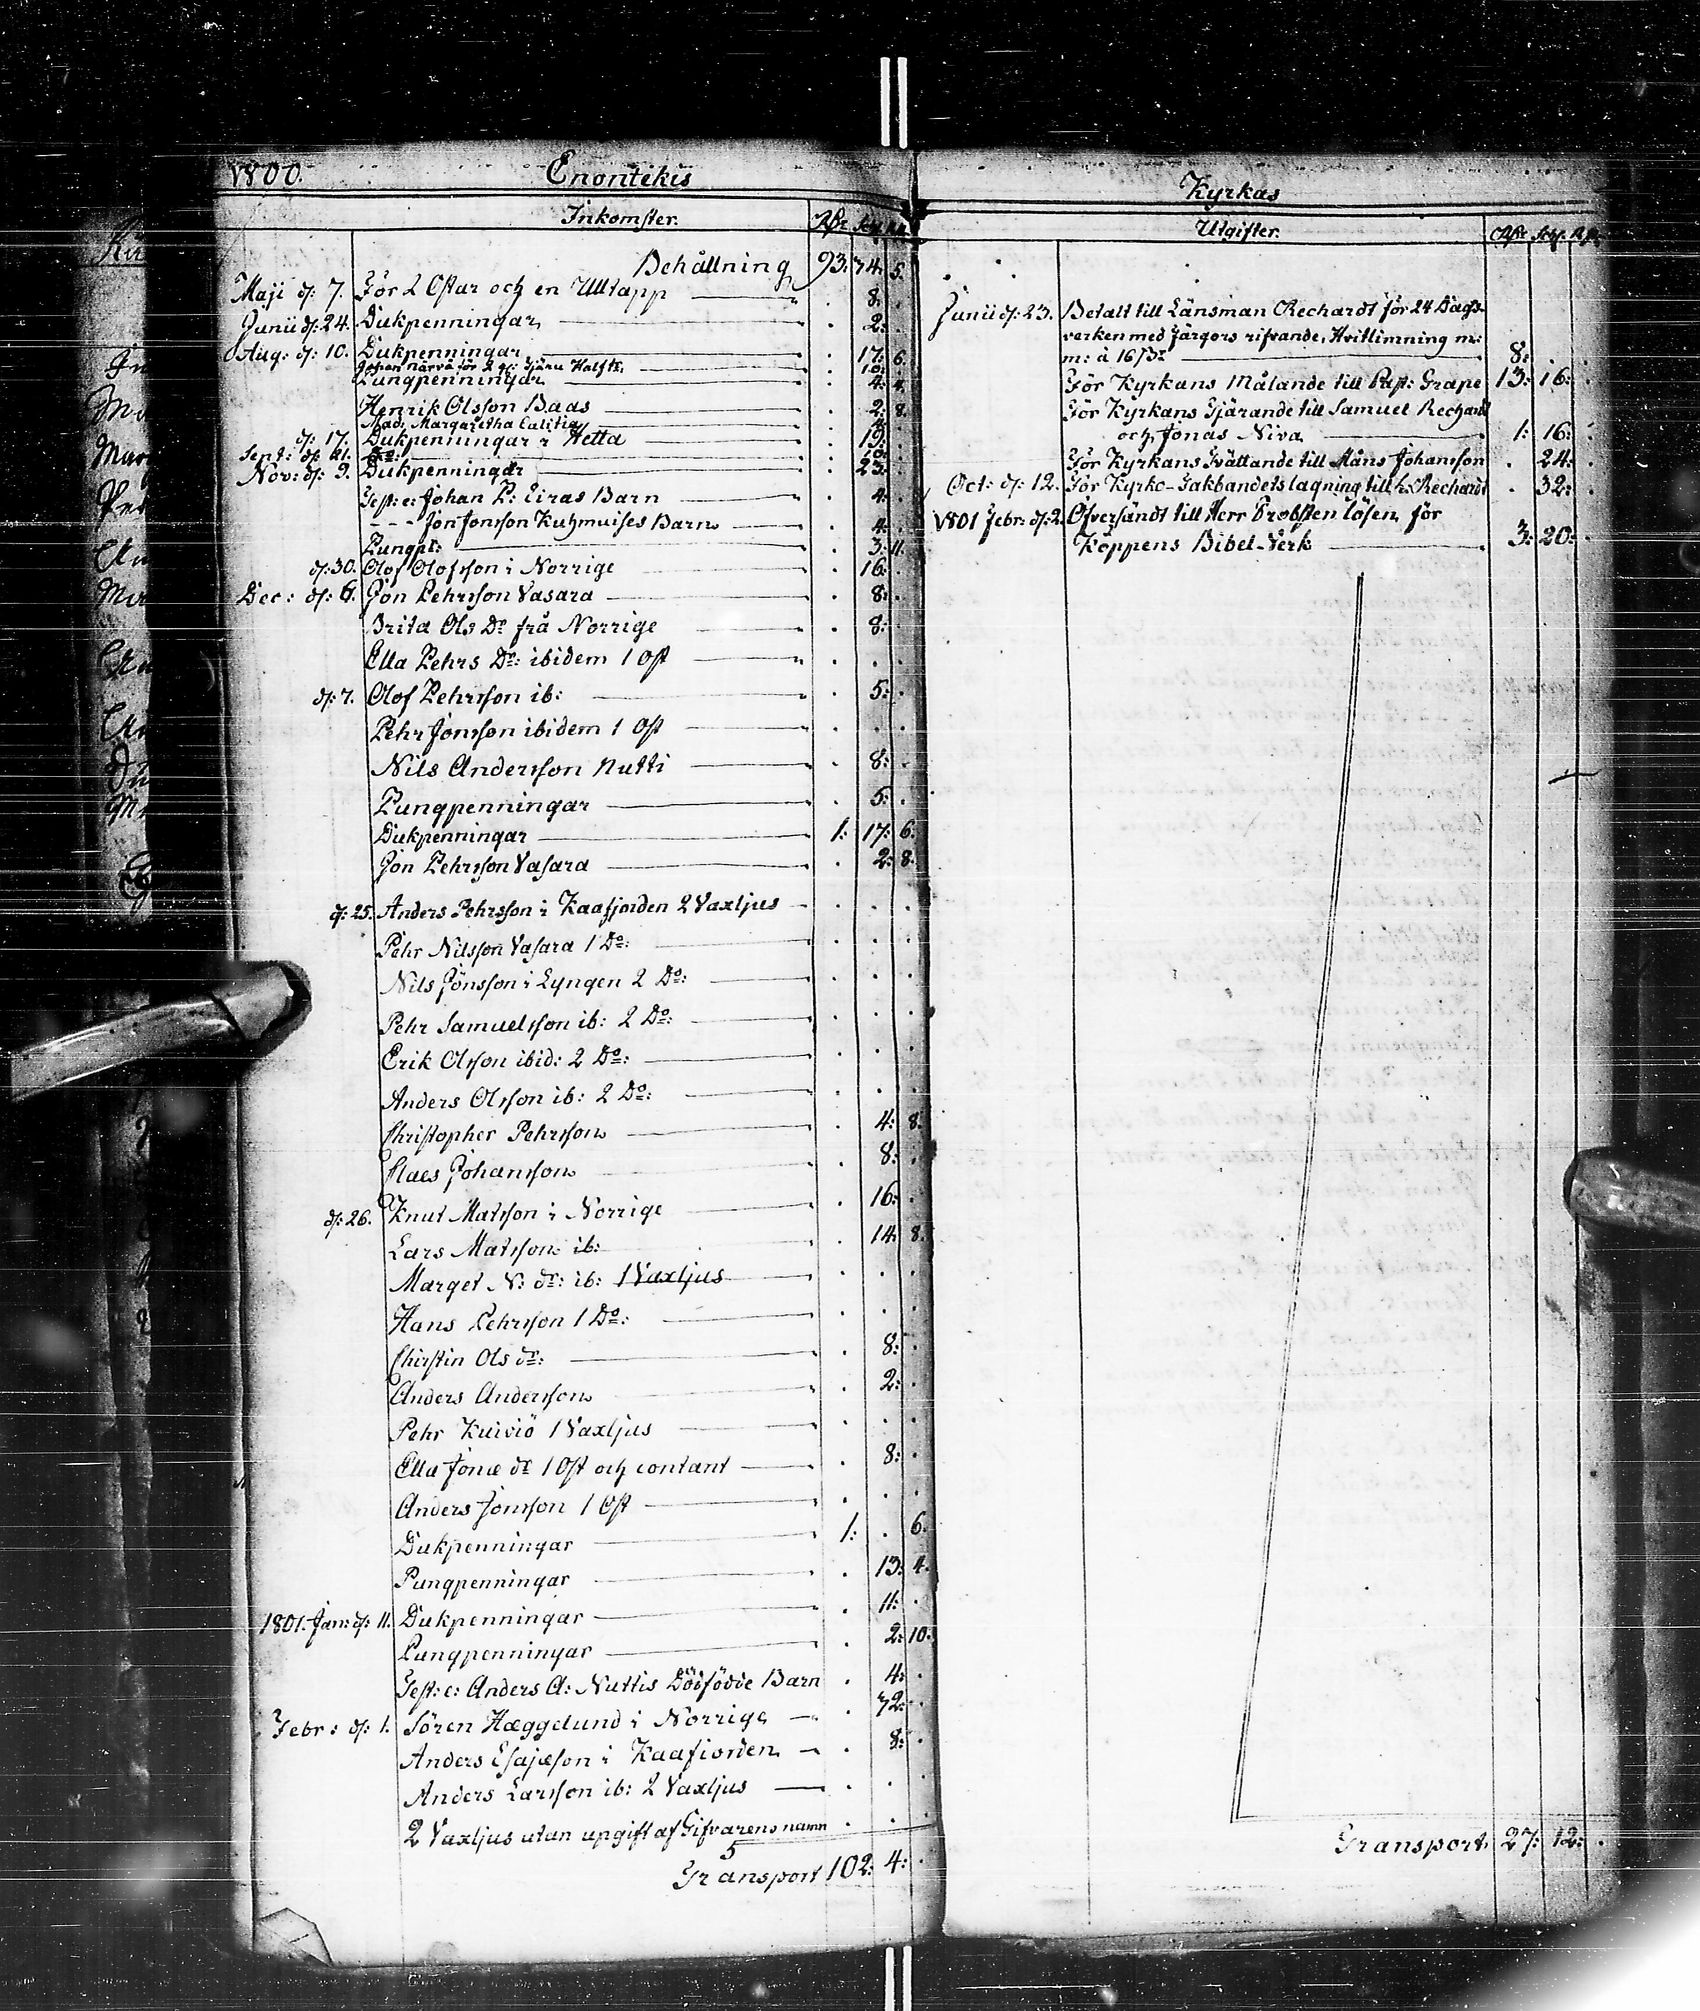 1800. Enontekis
Inkomster. Rdr Sk. rst
Behållning 93: 34. 5.
Maji d: 7. För 2 Ostar och en Ulltapp . 8. .
Junii d: 24. Dukpenningar . 2: .
Aug: d: 10. Dukpenningar . 17: 6.
Johan Närvä för 2 Halftr. . 10. .
Pungpenningar . 4: 4.
Henrik Olsson Baas . 2: 8.
Mad: Margaretha . 4. .
d: 17. Dukpenningar i Hetta . 19: .
Sept: d: 21. Do: . 10: .
Nov: d: 9. Dukpenningar . 23: .
Test: e: Johan P: Eiras Barn . 4: .
- - - Jon Jonsson Kuhmuises Barn . 4: .
Pungp: . 3: 11.
d: 30. Olof Olofsson i Norrige . 16: .
Dec: d: 6. Jon Pehrsson Vasara . 8: .
Brita Ols Dr frå Norrige . 8: .
Ella Pehrs Dr: ibidem 1 Ost . . .
d: 7. Olof Pehrsson ib: . 5: .
Pehr Jonsson ibidem 1 Ost . . .
Nils Andersson Nutti . 8: .
Pungpenningar . 5: .
Dukpenningar 1: 17: 6.
Jon Pehrsson Vasara . 2: 8.
d: 25. Anders Pehrsson i Kaafjorden 2 Vaxljus . . .
Pehr Nilsson Vasara 1 Do: . . .
Nils Jönsson i Lyngen 2 Do: . . .
Pehr Samuelsson ib: 2 Do: . . .
Erik Olsson ibid: 2 Do: . . .
Anders Olsson ib: 2 Do: . . .
Christopher Pehrsson . 4: 8.
Claes Johansson . 8: .
d: 26. Knut Matsson i Norrige . 16: .
Lars Matsson ib: . 14. 8.
Marget N: dr: ib: 1 Vaxljus . . .
Hans Pehrsson 1 Do: . . .
Chirstin Ols dr: . 8: .
Anders Andersson . 2: .
Pehr Kuiviö 1 Vaxljus . . .
Ella Jonæ dr 1 Ost och contant . 8: .
Anders Jonsson 1 Ost . . .
Dukpenningar 1: . 6.
Pungpenningar . 13: 4.
1801. Jan: d: 11. Dukpenningar . 11: .
Pungpenningar . 2: 10.
Test: e: Anders A: Nuttis Dödfödde Barn . 4: .
Febr: d: 1. Sören Hæggelund i Norrige . 32: .
Anders Esajæson i Kaafiorden . 8: .
Anders Larsson ib: 2 Vaxljus . . .
2 Vaxljus utan upgift af Gifvarens namn . . .
5
Transport 102: 4: .
Kyrkas
Utgifter. Rdr Sk. rst
Junii d: 23. Betalt till Länsman Rechardt för 24 Dags-
verken med Färgors rifvande, Hvitlimning m:
m: à 16 sz 8: . .
För Kyrkans Målande till Past: Grape 13: 16: .
För Kyrkans Tjärande till Samuel Rechardt
och Jonas Niva 1: 16: .
För Kyrkans Tvättande till Måns Johansson . 24: .
Oct: d: 12. För Kyrko-Takbandets lagning till L: Rechardt . 32: .
1801 Febr: d: 2. Öfversändt till Herr Probsten lösen för
Köppens Bibel-Verk 3: 20: .
Transport 27: 12: .